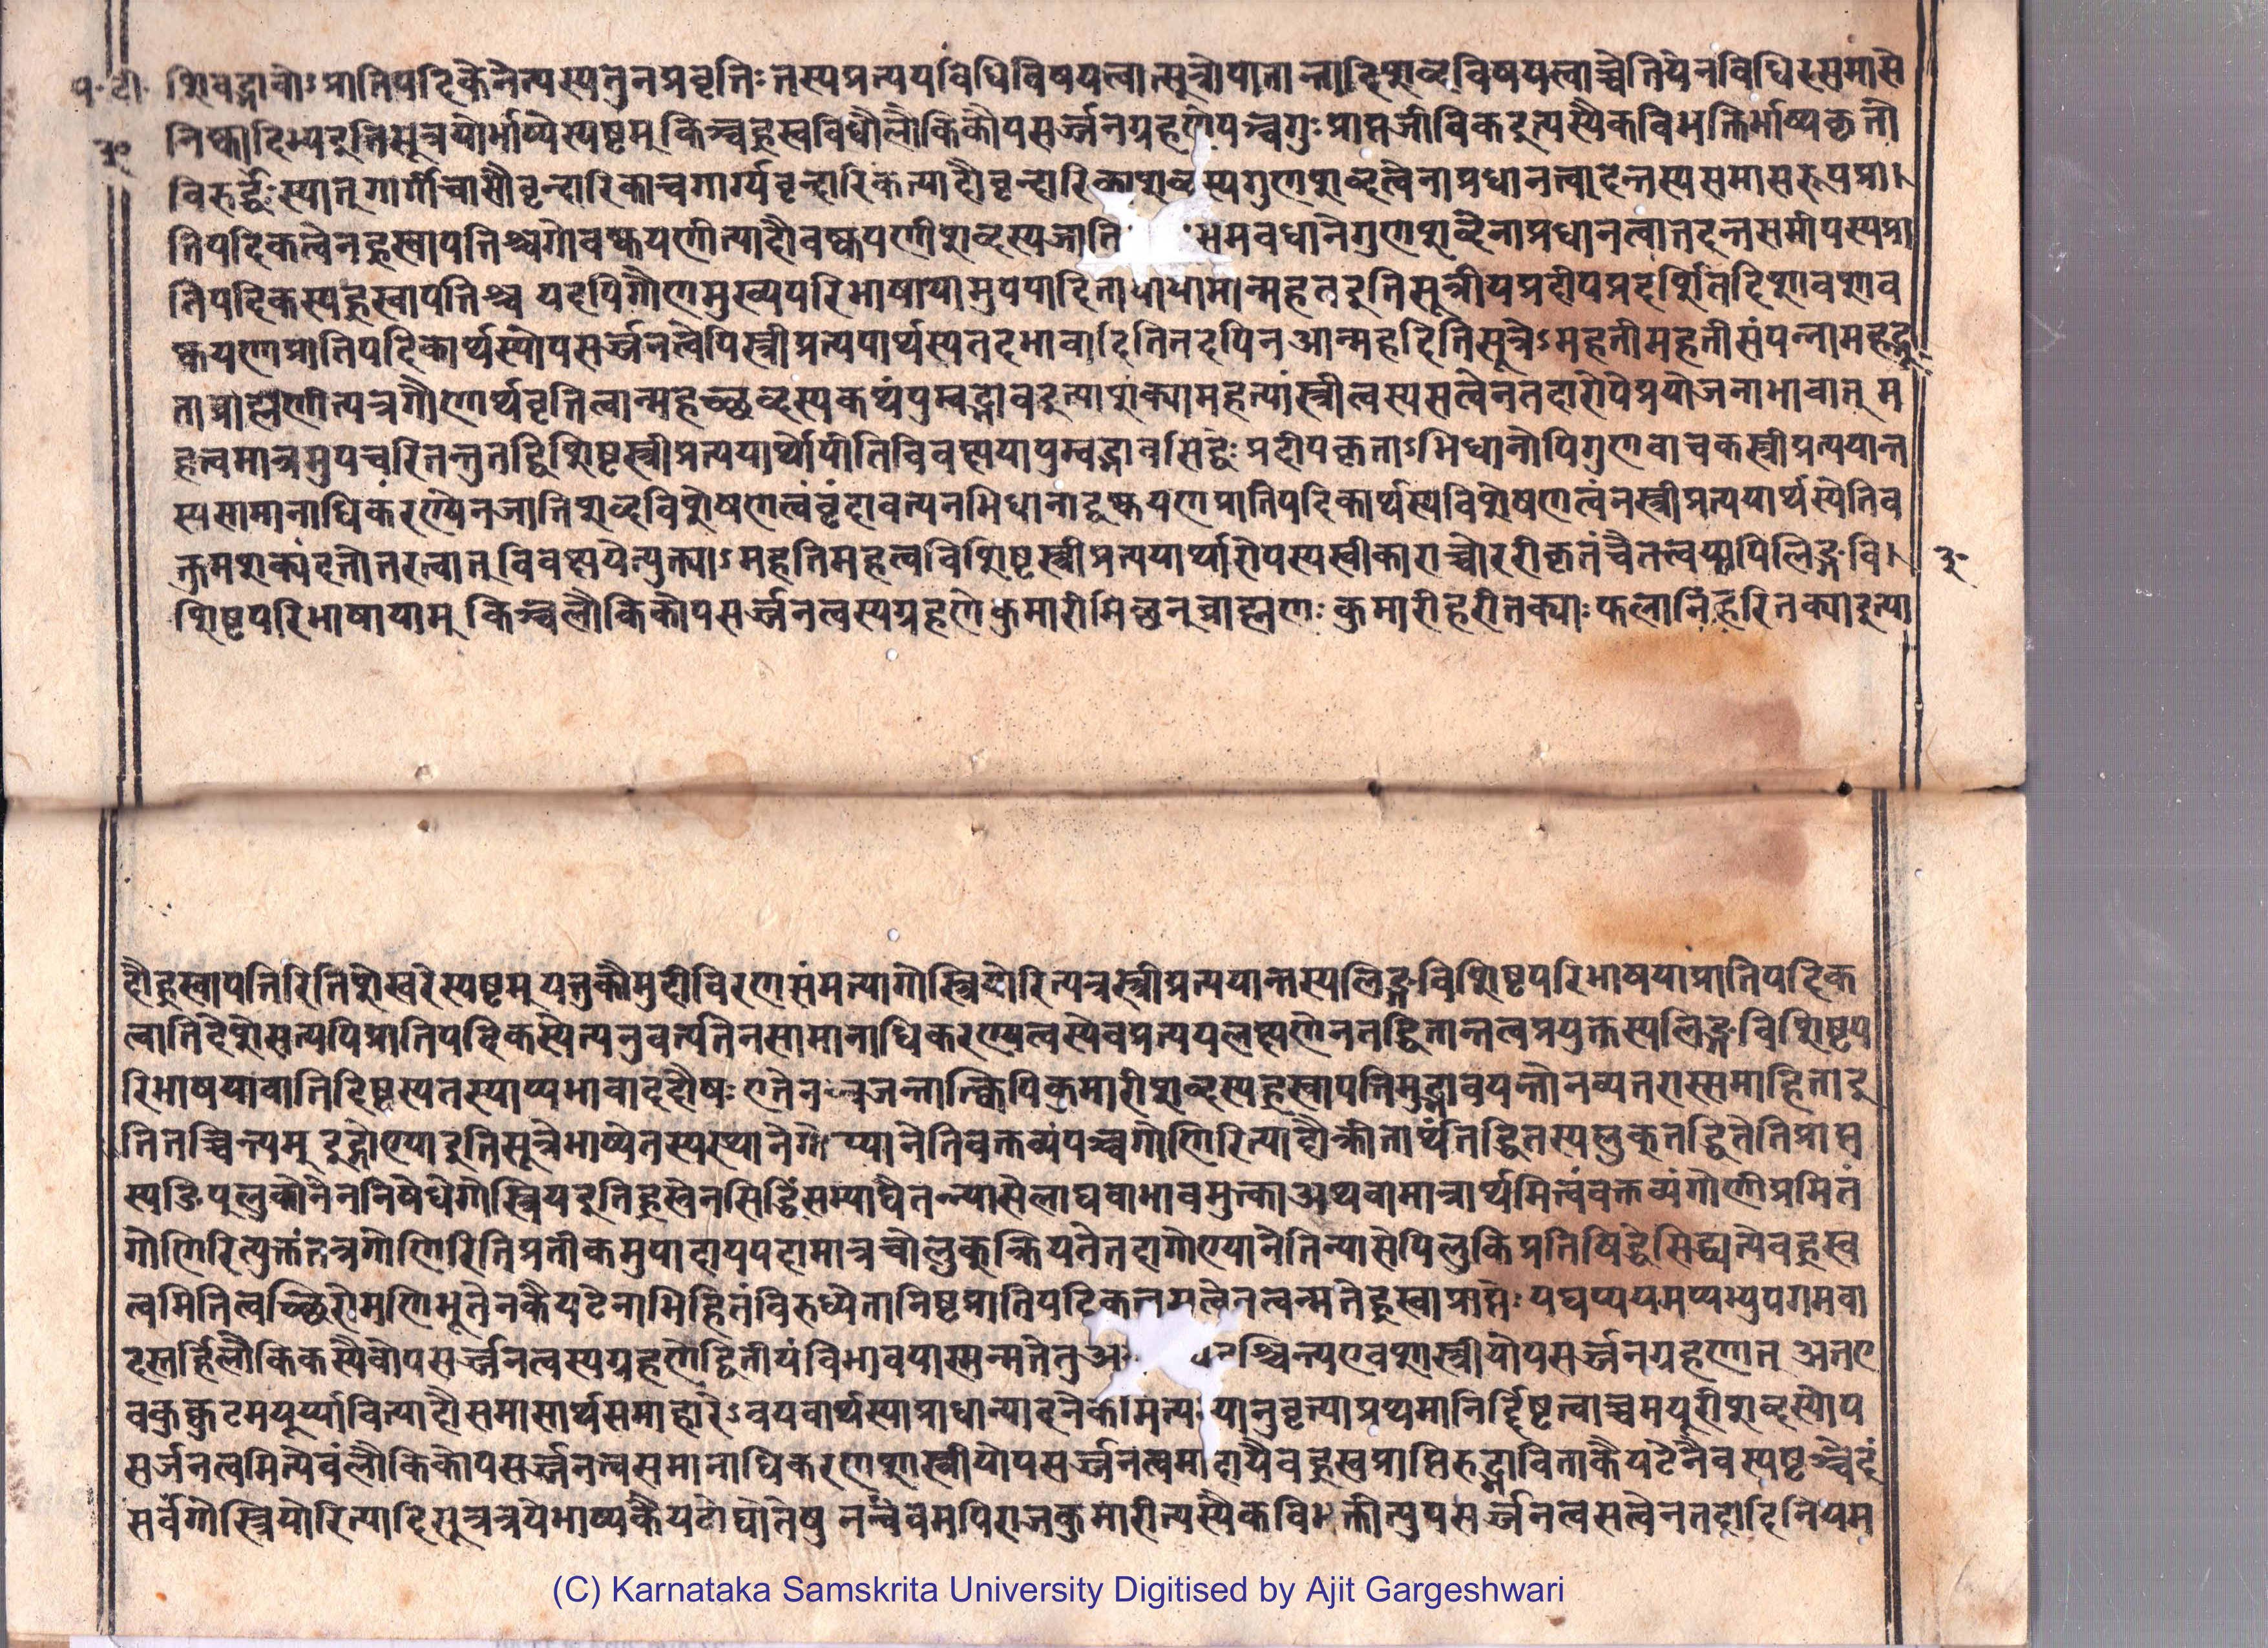 प॰ टी॰ शिवद्भावोऽप्रातिपदिकेनेत्यस्यतुनप्रवृत्तिः तस्यप्रत्ययविधिविषयत्वात्सूत्रोपात्तान्तादिशब्दविषयत्वाच्चेतियेनविधिरसमासे
३० निष्कादिभ्यइतिसूत्रयोर्भाष्येस्पष्टम् किञ्चह्रस्वविधौलौकिकोपसर्ज्जनग्रहणेपञ्चगुः प्राप्तजीविकइत्यस्यैकविभक्तिर्भाष्यकृतौ
विरुर्द्धेः स्यात् गार्गीचासौवृन्दारिकाचगार्ग्यवृन्दारिकेत्यादौवृन्दारिकाशब्दस्यगुणशब्दत्वेनाप्रधानत्वात्तदन्तस्यसमासरूपप्रा।
तिपदिकत्वेनह्रस्वापत्तिश्चगोवष्कयणीत्यादौवष्कयणीशब्दस्यजाति समवधानेगुणशब्देनाप्रधानत्वात्तदन्तसमीपस्यप्रा
तिपदिकस्यह्रस्वापत्तिश्च यदपिगौणमुख्यपरिभाषायामुपपादितायायामान्महतइतिसूत्रीयप्रदीपप्रदर्शितदिशावशाव
ष्कयणप्रातिपदिकार्थस्योपसर्ज्जनत्वेपिस्त्रीप्रत्ययार्थस्यतदभावादितितदपिन आन्महदितिसूत्रेऽमहतीमहतीसंपन्नामहद्भू
ताब्राह्मणीत्यत्रगौणार्थवृत्तित्वान्महच्छब्दस्यकथंपुम्वद्भावइत्याशंक्यामहत्यांस्त्रीत्वस्यसत्वेनतदारोपेप्रयोजनाभावात् म
हत्वमात्रमुपचरितन्तुतद्विशिष्टस्त्रीप्रत्ययार्थोपीतिविवक्षयापुम्वद्भावसिद्धेः प्रदीपकृताऽभिधानेपिगुणवाचकस्त्रीप्रत्ययान्त
स्यसामानाधिकरण्येनजातिशब्दविशेषणत्वंवृंदावत्येनभिधानाद्वष्कयणप्रातिपदिकार्थस्यविशेषणत्वंनस्त्रीप्रत्ययार्थस्येतिव
क्तुमशक्यंदत्तोत्तरत्वात् विवक्षायेत्युक्त्याऽमहतिमहत्वविशिष्टस्त्रीप्रत्ययार्थारोपस्यस्वीकाराच्चोररीकृतंचैतत्त्वयापिलिङ्गवि। ३॰
शिष्टपरिभाषायाम् किञ्चलौकिकोपसर्ज्जनत्वस्यग्रहणेकुमारीमिच्छन्ब्राह्मणः कुमारीहरीतक्याः फलानिहरितक्याइत्या
दौह्रस्वापत्तिरितिशेखरेस्पष्टम् यत्तुकौमुदीविरणसंमत्यागोस्त्रियोरित्यत्रस्त्रीप्रत्ययान्तस्यलिङ्गविशिष्टपरिभाषयाप्रातिपदिक
त्वातिदेशेसत्यपिप्रातिपदिकस्येत्यनुवर्त्यतेनसामानाधिकरण्येत्वस्येवप्रत्ययलक्षणेनतद्धितान्तत्वप्रयुक्तस्यलिङ्गविशिष्टप
रिभाषयावातिदिष्टस्यतस्याप्यभावाददोषः एतेन जन्तात्क्विपिकुमारीशब्दस्यह्रस्वापत्तिमुद्भावयन्तोनव्यतरास्समाहिताइ
तितच्चिन्त्यम् इद्गोण्याइतिसूत्रेभाष्येतस्यस्थानेगोण्यानेतिवक्तव्यंपञ्चगोणिरित्यादौक्रीतार्थतद्धितस्यलुक्तद्धितेतिप्राप्त
स्यङीपूलुकोनेननिषेधेगोस्त्रियइतिह्रस्वेनसिद्धिंसम्पाद्यैतन्न्यासेलाघवाभावमुक्त्वाअथवामात्रार्थमित्त्वंवक्तव्यंगोणीप्रमितं
गोणिरित्युक्तंतत्रगोणिरितिप्रतीकमुपादायपदामात्रचोलुक्क्रियतेतदागोण्यानेतिन्यासेपिलुकिप्रतिषिद्धेसिद्ध्यत्येवह्रस्व
त्वमितित्वच्छिरोमणिभूतेनकैयटेनाभिहितंविरुध्येतानिष्टप्रातिपदिकत्त त्वेनत्वन्मतेह्रस्वाप्राप्तेः यद्यप्ययमप्यभ्युपगमवा
दस्तर्हिलौकिकस्यैवोपसर्ज्जनत्वस्यग्रहणेद्वितीयंविभावयास्मन्मतेतु श्चिन्त्यएवशास्त्रीयोपसर्ज्जनग्रहणात् अतए
वकुक्कुटमयूर्य्यावित्यादौसमासार्थसमाहारेऽवयवार्थस्याप्राधान्यादनेकमित्य यानुवृत्याप्रथमानिर्द्दिष्टत्वाच्चमयूरीशब्दस्योप
सर्जनत्वमित्येवंलौकिकोपसर्ज्जनत्वसमानाधिकरणशास्त्रीयोपसर्ज्जनत्वमादायैवह्रस्वप्राप्तिरुद्भाविताकैयटेनैवस्पष्टञ्चेदं
सर्वेगोस्त्रियोरित्यादिसूत्रत्रयेभाष्यकैयटोद्योतेषु नन्वेवमपिराजकुमारीत्यस्यैकविभक्तीत्युपसर्ज्जनत्वसत्वेनतदादिनियम
(C) Karnataka Samskrita University Digitised by Ajit Gargeshwari